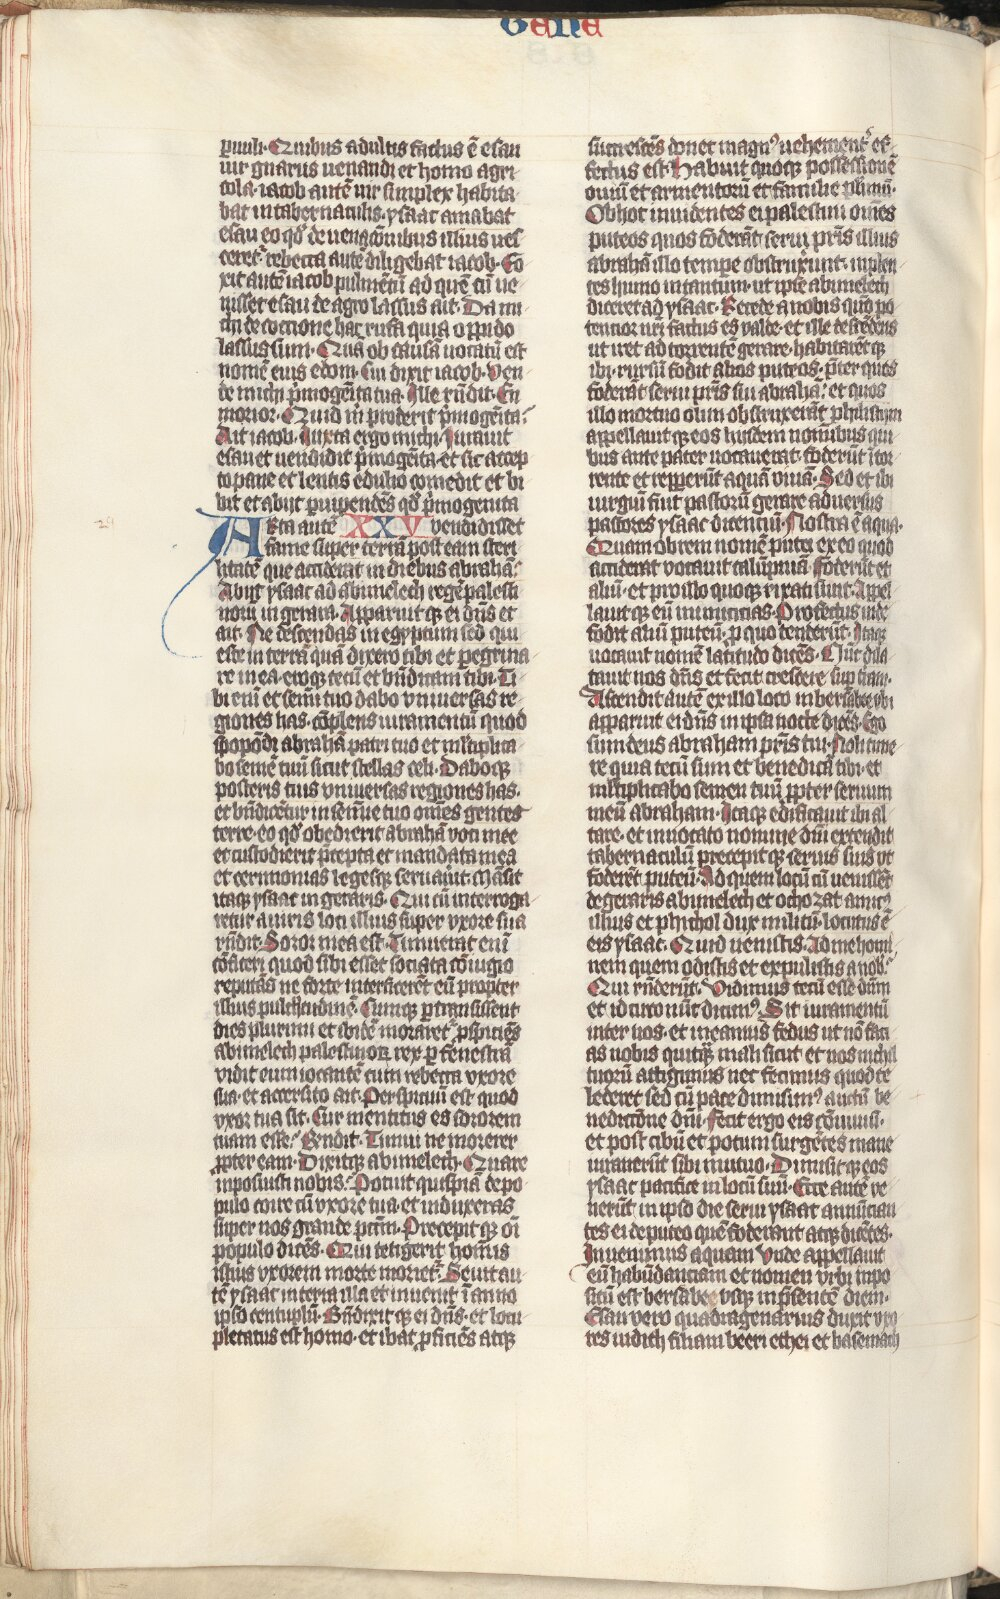 Gene
p̄uuli. Quibus adultis factus ē esau
uir gnarus uenandi et homo agri
cola. iacob autē uir simplex habita
bat in tabernaculis. ysaac amabat
esau eo qd̓ de uenac̄onibus illius ues
ceret᷑. rebecca autē diligebat iacob. Co
xit autē iacob pulmētū ad quē cū ue
nisset esau de agro lassus ait. Da mi
chi de coccione hac rufa quia oppido
lassus sum. Quā ob causā uocatū est
nomē eius edom. Cui dixit iacob. Ven
de michi p̓mogēita tua. Ille rn̄dit. En
morior. Quid m̓ proderūt p̓mogēita?
Ait iacob. Iura ergo michi. Iurauit
esau et uendidit p̓mogēita. et sic accep
to pane et lentis edulio comedit et bi
bit et abijt paruipendēs qd̓ p̓mogenita
29
Orta autē XXV vendidisset
fame super terrā post eam steri
litatē que acciderat in diebus abrahā.
Abijt ysaac ad abimelech regē palesti
noru in gerara. Apparuit q̨ ei dn̄s et
ait. Ne descendas in egyptum sed qui
esce in terra quā dixero tibi et pegrina
re in ea. eroq̨ tecū et bn̄dicam tibi. Ti
bi eni et semi tuo dabo vniuersas re
giones has. cōplens iuramentū quod
spopōdi abrahā patri tuo et mltiplica
bo semē tuū sicut stellas celi. Daboq̨
posteris tuis vniuersas regiones has.
et bn̄dicētur in semīe tuo om̄es gentes
terre. eo qd̓ obedierit abrahā voci mee
et custodierit p̄cepta et mandata mea
et cerimonias legesq̨ seruauit. Māsit
itaq̨ ysaac in geraris. Qui cū interroga
retur a uiris loci illius super vxore sua
rn̄dit. Soror mea est. Timuerat eni
cōfiteri quod sibi esset sociata cōiugio
reputās ne forte interficerēt eū propter
illius pulcritudinē. Cumq̨ p̄transissent
dies plurimi et ibidē moraret᷑. p̄spiciēs
abimelech palestinoꝝ rex p̱ fenestrā
vidit eum iocantē cum rebecca vxore
sua. et accersito ait. Perspicuū est quod
vxor tua sit. Cur mentitus es sororem
tuam esse? Rn̄dit. Timui ne morerer
p̱pter eam. Dixitq̨ abimelech. Quare
inposuisti nobis? Potuit quispiā de po
pulo coire cū vxore tua et induxeras
super nos grande pctm̄. Precepit q̨ oi
populo dicēs. Qui tetigerit hom̄is
istius vxorem morte moriet᷑. Seuit au
tē ysaac in terra illa et inuenit ī anno
ipso centuplū. Bn̄dixit q̨ ei dn̄s. et locu
pletatus est homo. et ibat p̱ficiēs atq̨
succrescēs donec magn̓ uehement᷑ ef
fectus est. Habuit quoq̨ possessionē
ouiū et armentorū et familie plurimū.
Ob hoc inuidentes ei palestini om̄es
puteos quos foderāt serui pr̄is illius
abrahā illo tempe obstruxerunt. inplen
tes humo in tantum. ut ipse abimelech
diceret ad ysaac. Recede a nobis quō po
tencior nr̄i factus es valde. et ille descēdens
ut iret ad torrentē gerare. habitaret q̨
ibi. rursū fodit alios puteos. p̄ter quos
foderāt serui pr̄is sui abrahā. et quos
illo mortuo olim obstruxerāt philistiim
appellauit q̨ eos hiisdem nom̄ibus qui
bus ante pater uocauerat. foderūt ī tor
rente et reppeūt aquā viuā. Sed et ibi
iurgiū fuit pastorū gerare aduersus
pastores ysaac dicentiū. Nostra ē aqua.
Quam obrem nomē putei ex eo quod
acciderat vocauit calūpniā. Foderūt et
aliū. et pro illo quoq̨ rixati sunt. Appel
lauit q̨ eū inimicicias. Profectus inde
fodit aliū puteū. p̱ quo cōtenderūt. Itaq̨
uocauit nomē latitudo dicēs. Nūc dila
tauit nos dn̄s et fecit crescere sup terrā.
Ascendit autē ex illo loco in bersabee vbi
apparuit ei dn̄s in ipsa nocte dicēs. Ego
sum deus abraham pr̄is tui. Noli time
re quia tecū sum et benedicā tibi. et
mltiplicabo semen tuū p̱pter seruum
meū abraham. Itaq̨ edificauit ibi al
tare. et inuocato nomine dn̄i extendit
tabernaculū precepitq̨ seruis suis vt
foderēt puteū. Ad quem locū cū uenissēt
de geraris abimelech et ochozat amic̓
illius et phichol dux militū. locutus ē
eis ysaac. Quid uenistis. ad me homi
nem quem odistis et expulistis a nob̓.
Qui rn̄derūt. Vidimus tecū esse dn̄m
et idcirco nūc dicim̓. Sit iuramentū
inter nos. et ineamus fedus ut nō faci
as nobis quitq̨ mali sicut et nos nichil
tuorū attigimus nec fecimus quod te
lederet sed cū pace dimisim̓ auctū be
nedictiōne dn̄i. Fecit ergo eis cōuiuiū.
et post cibū et potum surgētes mane
iurauerūt sibi mutuo. Dimisit q̨ eos
ysaac pacifice in locū suū. Ecce autē ve
nerūt in ipso die serui ysaac annūcian
tes ei de puteo quē foderant atq̨ dicētes.
Inuenimus aquam Vnde appellauit
eū habūdanciam et nomen vrbi inpo
sitū est bersabee vsq̨ in p̄sentē diem.
Esau vero quadragenarius duxit vxo
res iudich filiam beeri ethei et basemath